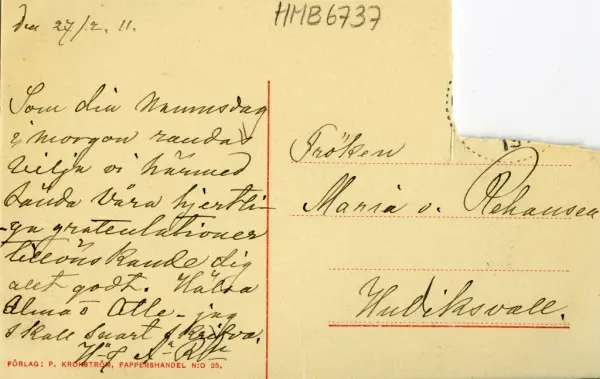 den 27/2. 11.
HMB6737
Som din Namnsdag
i morgon randas
vilja vi härmed
sända våra hjertli-
ga gratulationer
tillönskande dig
allt godt. Hälsa
Alma o Olle - jag
skall snart skrifva.
Fröken
Maria v. Rehausen
Hudiksvall.
FÖRLAG: P. KROHSTRÖM, PAPPERSHANDEL N:O 25.